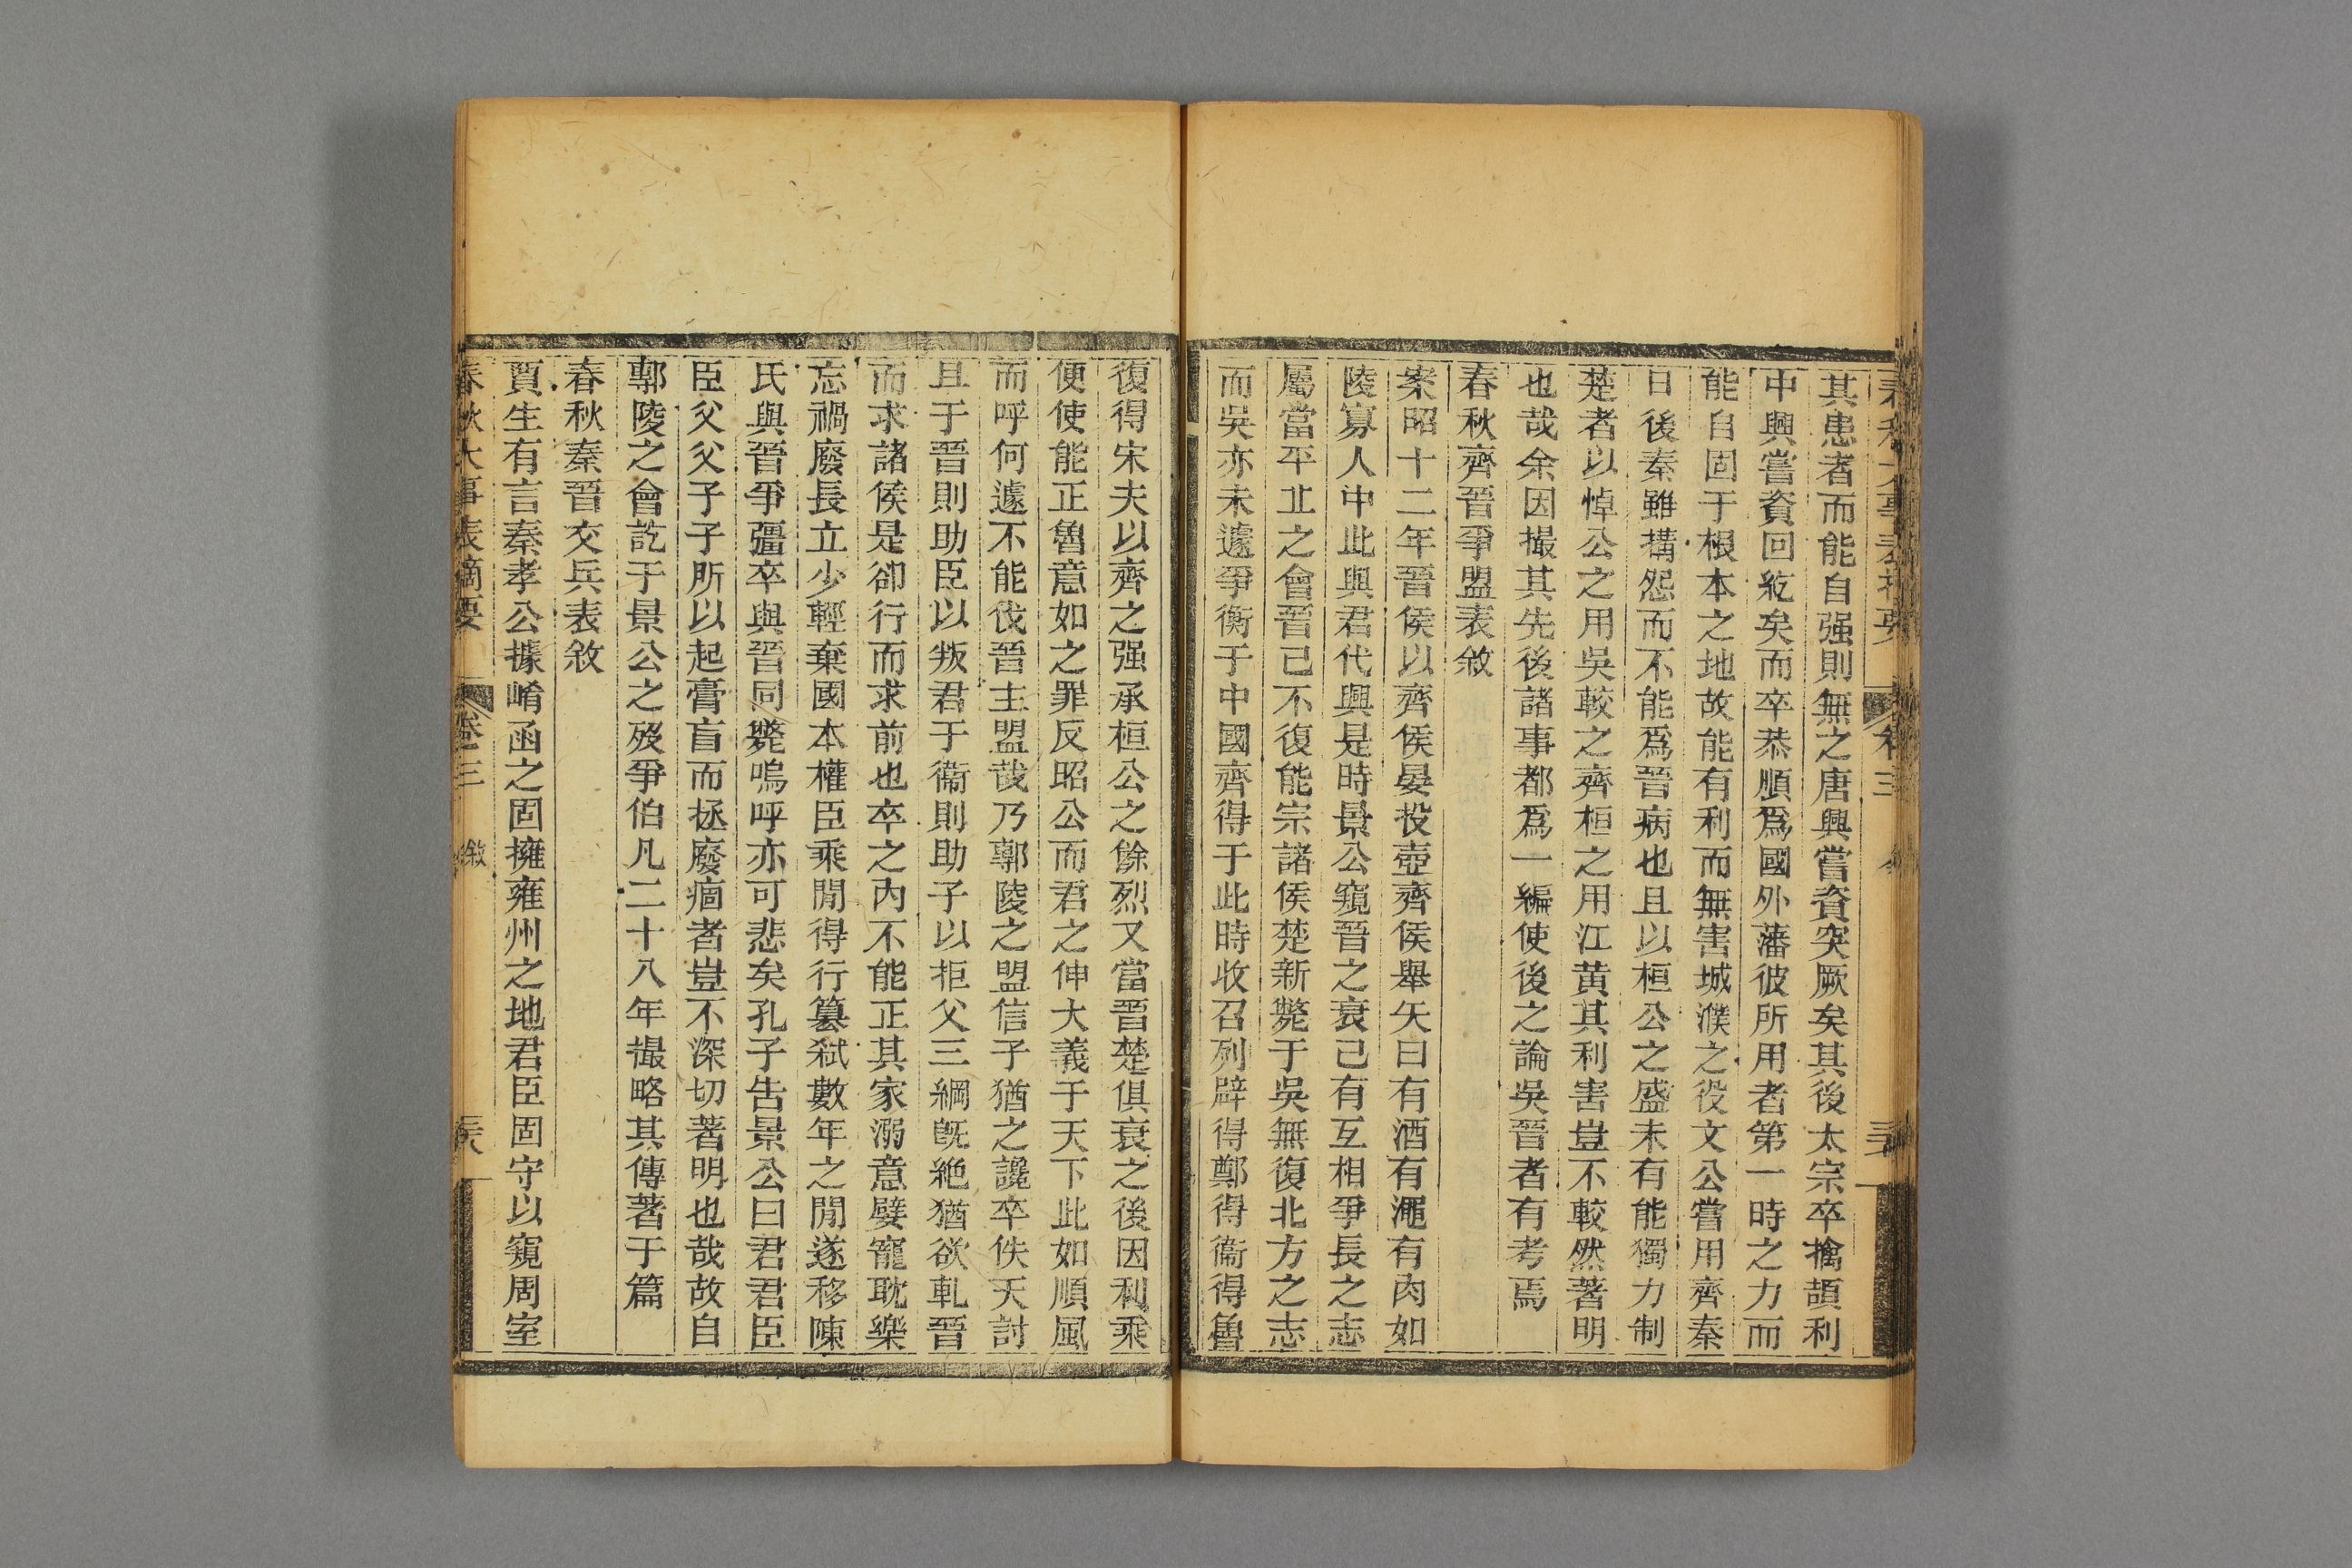 其患者而能自强則無之唐興嘗資突厥矣其後太宗卒擒頡利
中興嘗資回紇矣而卒恭順爲國外藩彼所用者第一時之力而
能自固于根本之地故能有利而無害城濮之役文公嘗用齊秦
日後秦雖搆怨而不能爲晉病也且以桓公之盛未有能獨力制
楚者以悼公之用吳較之齊桓之用江黃其利害豈不較然著明
也哉余因撮其先後諸事都爲一編使後之論吳晉者有考焉
春秋齊晉爭盟表敘
案昭十二年晉侯以齊侯晏投壺齊侯舉矢曰有酒有澠有肉如
陵寡人中此與君代興是時景公窺晉之衰已有互相爭長之志
屬當平丘之會晉已不復能宗諸侯楚新斃于吳無復北方之志
而吳亦未遽爭衡于中國齊得于此時收召列辟得鄭得衞得魯
復得宋夫以齊之强承桓公之餘烈又當晉楚俱衰之後因利乘
便使能正魯意如之罪反昭公而君之伸大義于天下此如順風
而呼何遽不能伐晉主盟哉乃鄟陵之盟信子猶之讒卒佚天討
且于晉則助臣以叛君于衞則助子以拒父三綱旣絶猶欲軋晉
而求諸侯是卻行而求前也卒之內不能正其家溺意嬖寵耽樂
忘禍廢長立少輕棄國本權臣乘閒得行篡弑數年之閒遂移陳
氏與晉爭彊卒與晉同斃嗚呼亦可悲矣孔子告景公曰君君臣
臣父父子子所以起膏盲而拯廢痼者豈不深切著明也哉故自
鄟陵之會訖于景公之歿爭伯凡二十八年撮略其傳著于篇
春秋秦晉交兵表敘
賈生有言秦孝公據崤函之固擁雍州之地君臣固守以窺周室
春秋大事表摘要 卷三 敘